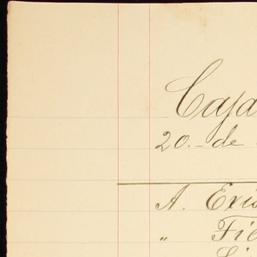 Caja
20.- de
A. Exis
" Fie